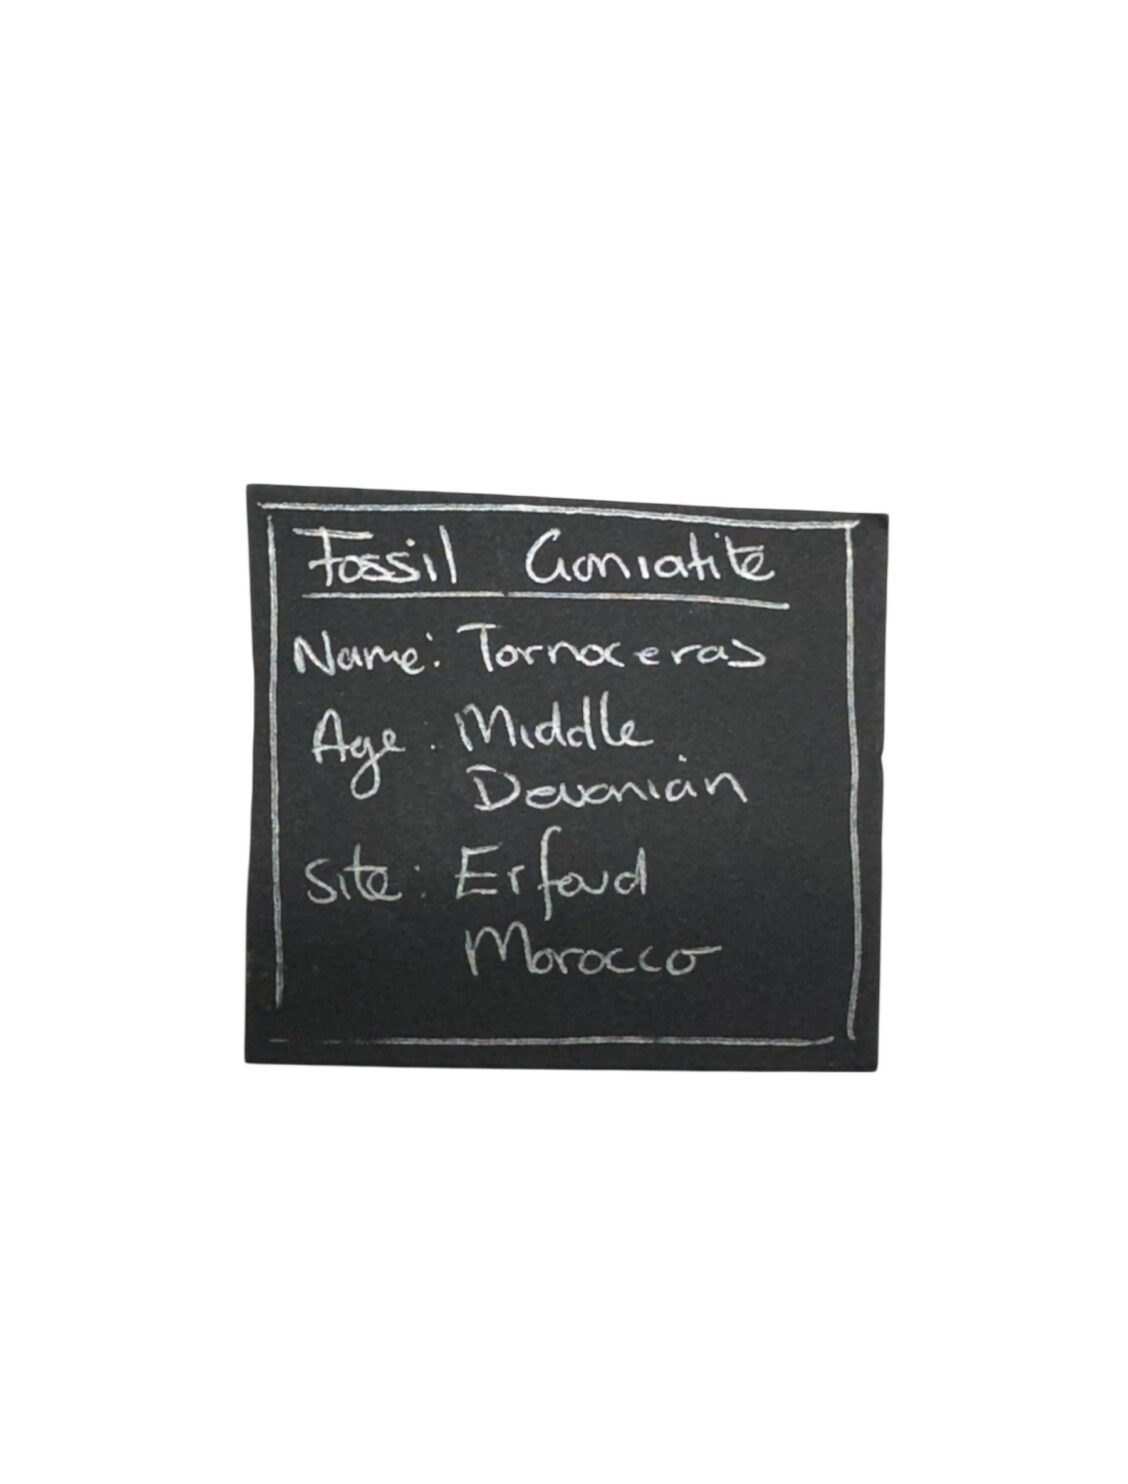 Fossil Goniatite
Name: Tornoceras
Age: Middle
Devonian
Site: Erfoud
Morocco